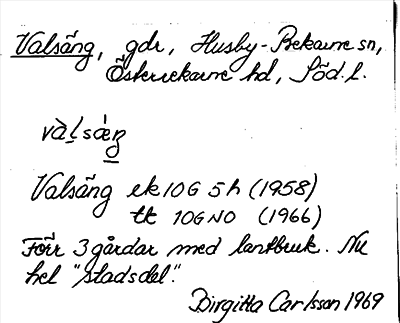 Valsäng, gdr, Husby-Rekarne sn,
Österrekarne hd, Söd. l.
Valsäng ek 10G 5h (1958)
tk 10G NO (1966)
Förr 3 gårdar med lantbruk. Nu
hel "stadsdel".
Birgitta Carlsson 1969